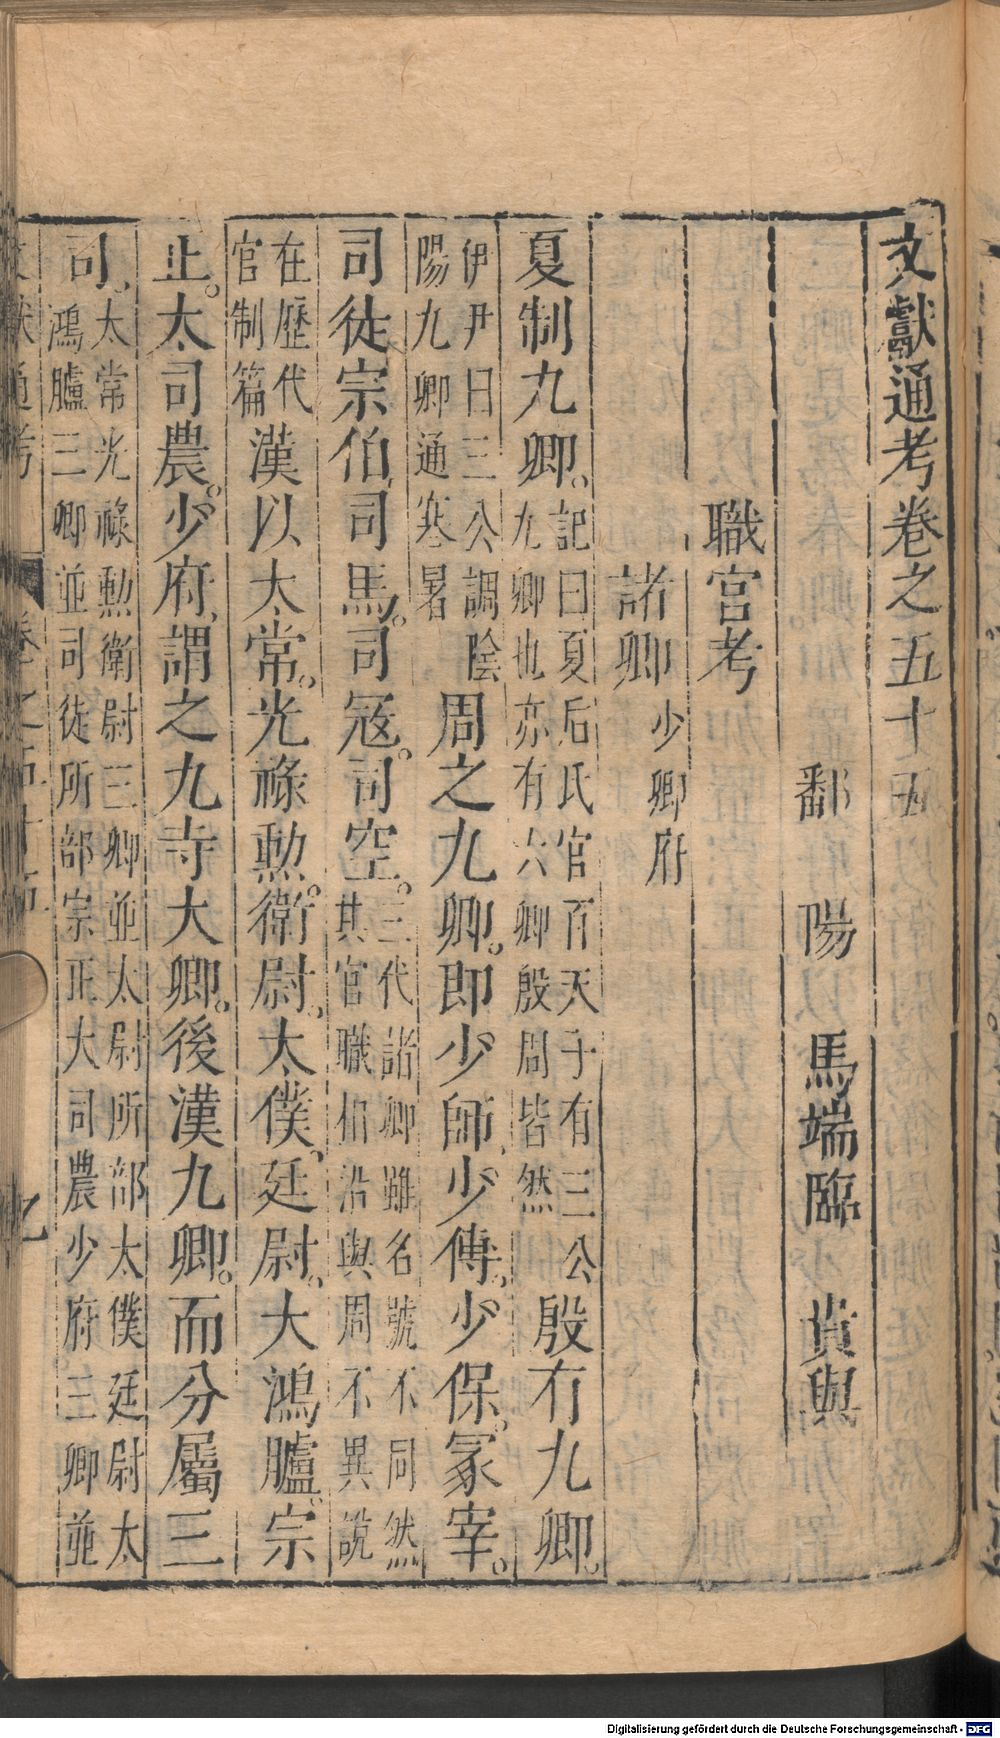 文獻通考卷之五十五
鄱陽馬端臨貴與
職官考
諸卿少卿府
夏制九卿記曰夏后氏官百天子有三公
九卿也亦有六卿殷周皆然殷有九卿。
伊尹曰三公調陰
陽九卿通寒暑周之九卿。即少師少傅。少保。冢宰。
司徒宗伯司馬。司冦。司空。三代諸卿雖名號不同然
其官職相沿與周不異說
在歷代
官制篇漢以太常。光祿勲。衛尉。太僕。廷尉。大鴻臚。宗
正。大司農。少府。謂之九寺大卿。後漢九卿。而分屬三
司。太常光祿勲衛尉三卿並太尉所部太僕廷尉大
鴻臚三卿並司徒所部宗正大司農少府三卿並
文獻通考 卷之五十五
Digitalisierung gefördert durch die Deutsche Forschungsgemeinschaft - DFG